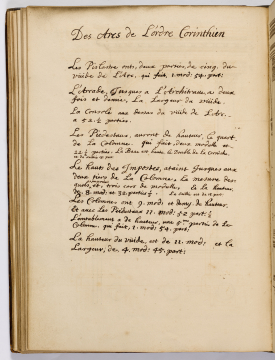 Des Arcs de Lordre Corinthien
Les Pilastre ont, deux partie, de cinq, du
vuide de L'Arc, qui fait, 1. mod: 54. part:
L'Arcade, Jusques a L'Architrave, a deux
fois et demie, La Largeur du vuide.
La Console au dessus du vuide de L'Arc,
a 52. ½ parties.
Les Piedestaux, auront de hauteur, le quart
de La Colonne, qui fait, deux modelle et
22 ½ parties. La Base est haute, le Double de la Corniche
Le hauts des Impostes, ataint Jusques aux
deux tiers de La Colonne. La mesure des
quels, et, trois cars de modelles, La hauteur
de, 8. mod: et 32. parties
Les Colonnes ont 9. mod: et demy de hauteur,
Et avec Les Piedestaux 11. mod: 52 part: ½
L'entablement a de hauteur, une 5me partie de La
Colonne, qui fait, 1. mod: 54. part:
La hauteur du vuide, est de 11. mod: et la
Largeur, de 4. mod: 45. part: